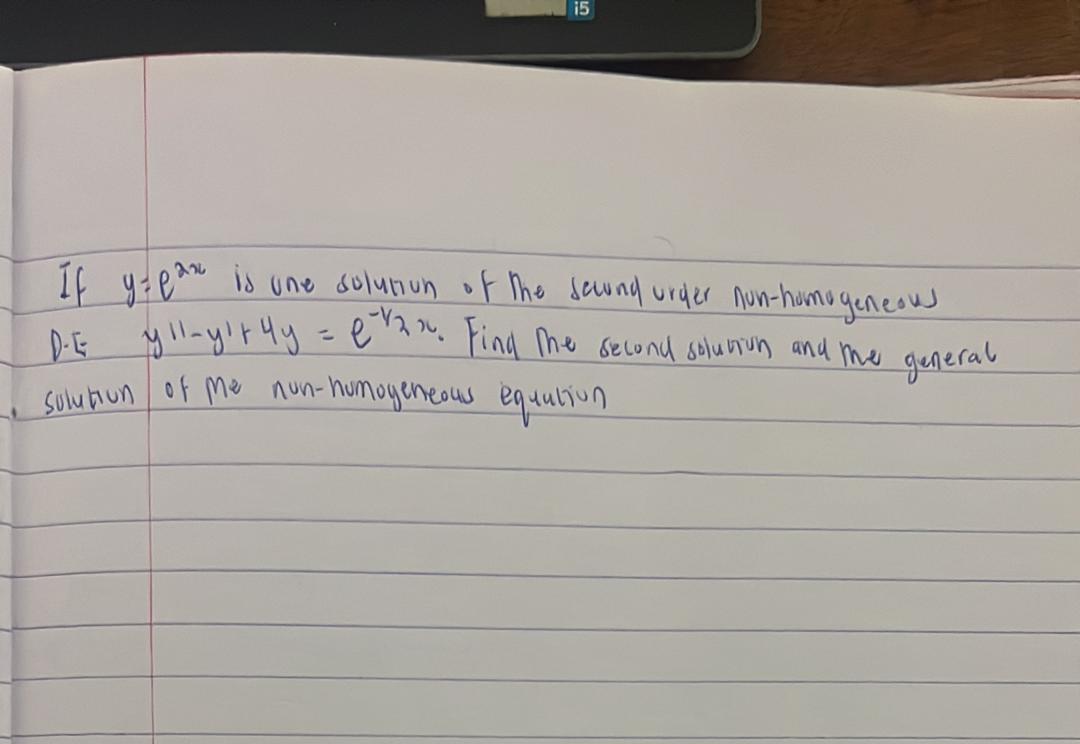 i5
If y = e^2x is one solution of the second order non-homogeneous
D.E y'' - y' + 4y = e^-1/2 x. Find the second solution and the general
solution of the non-homogeneous equation